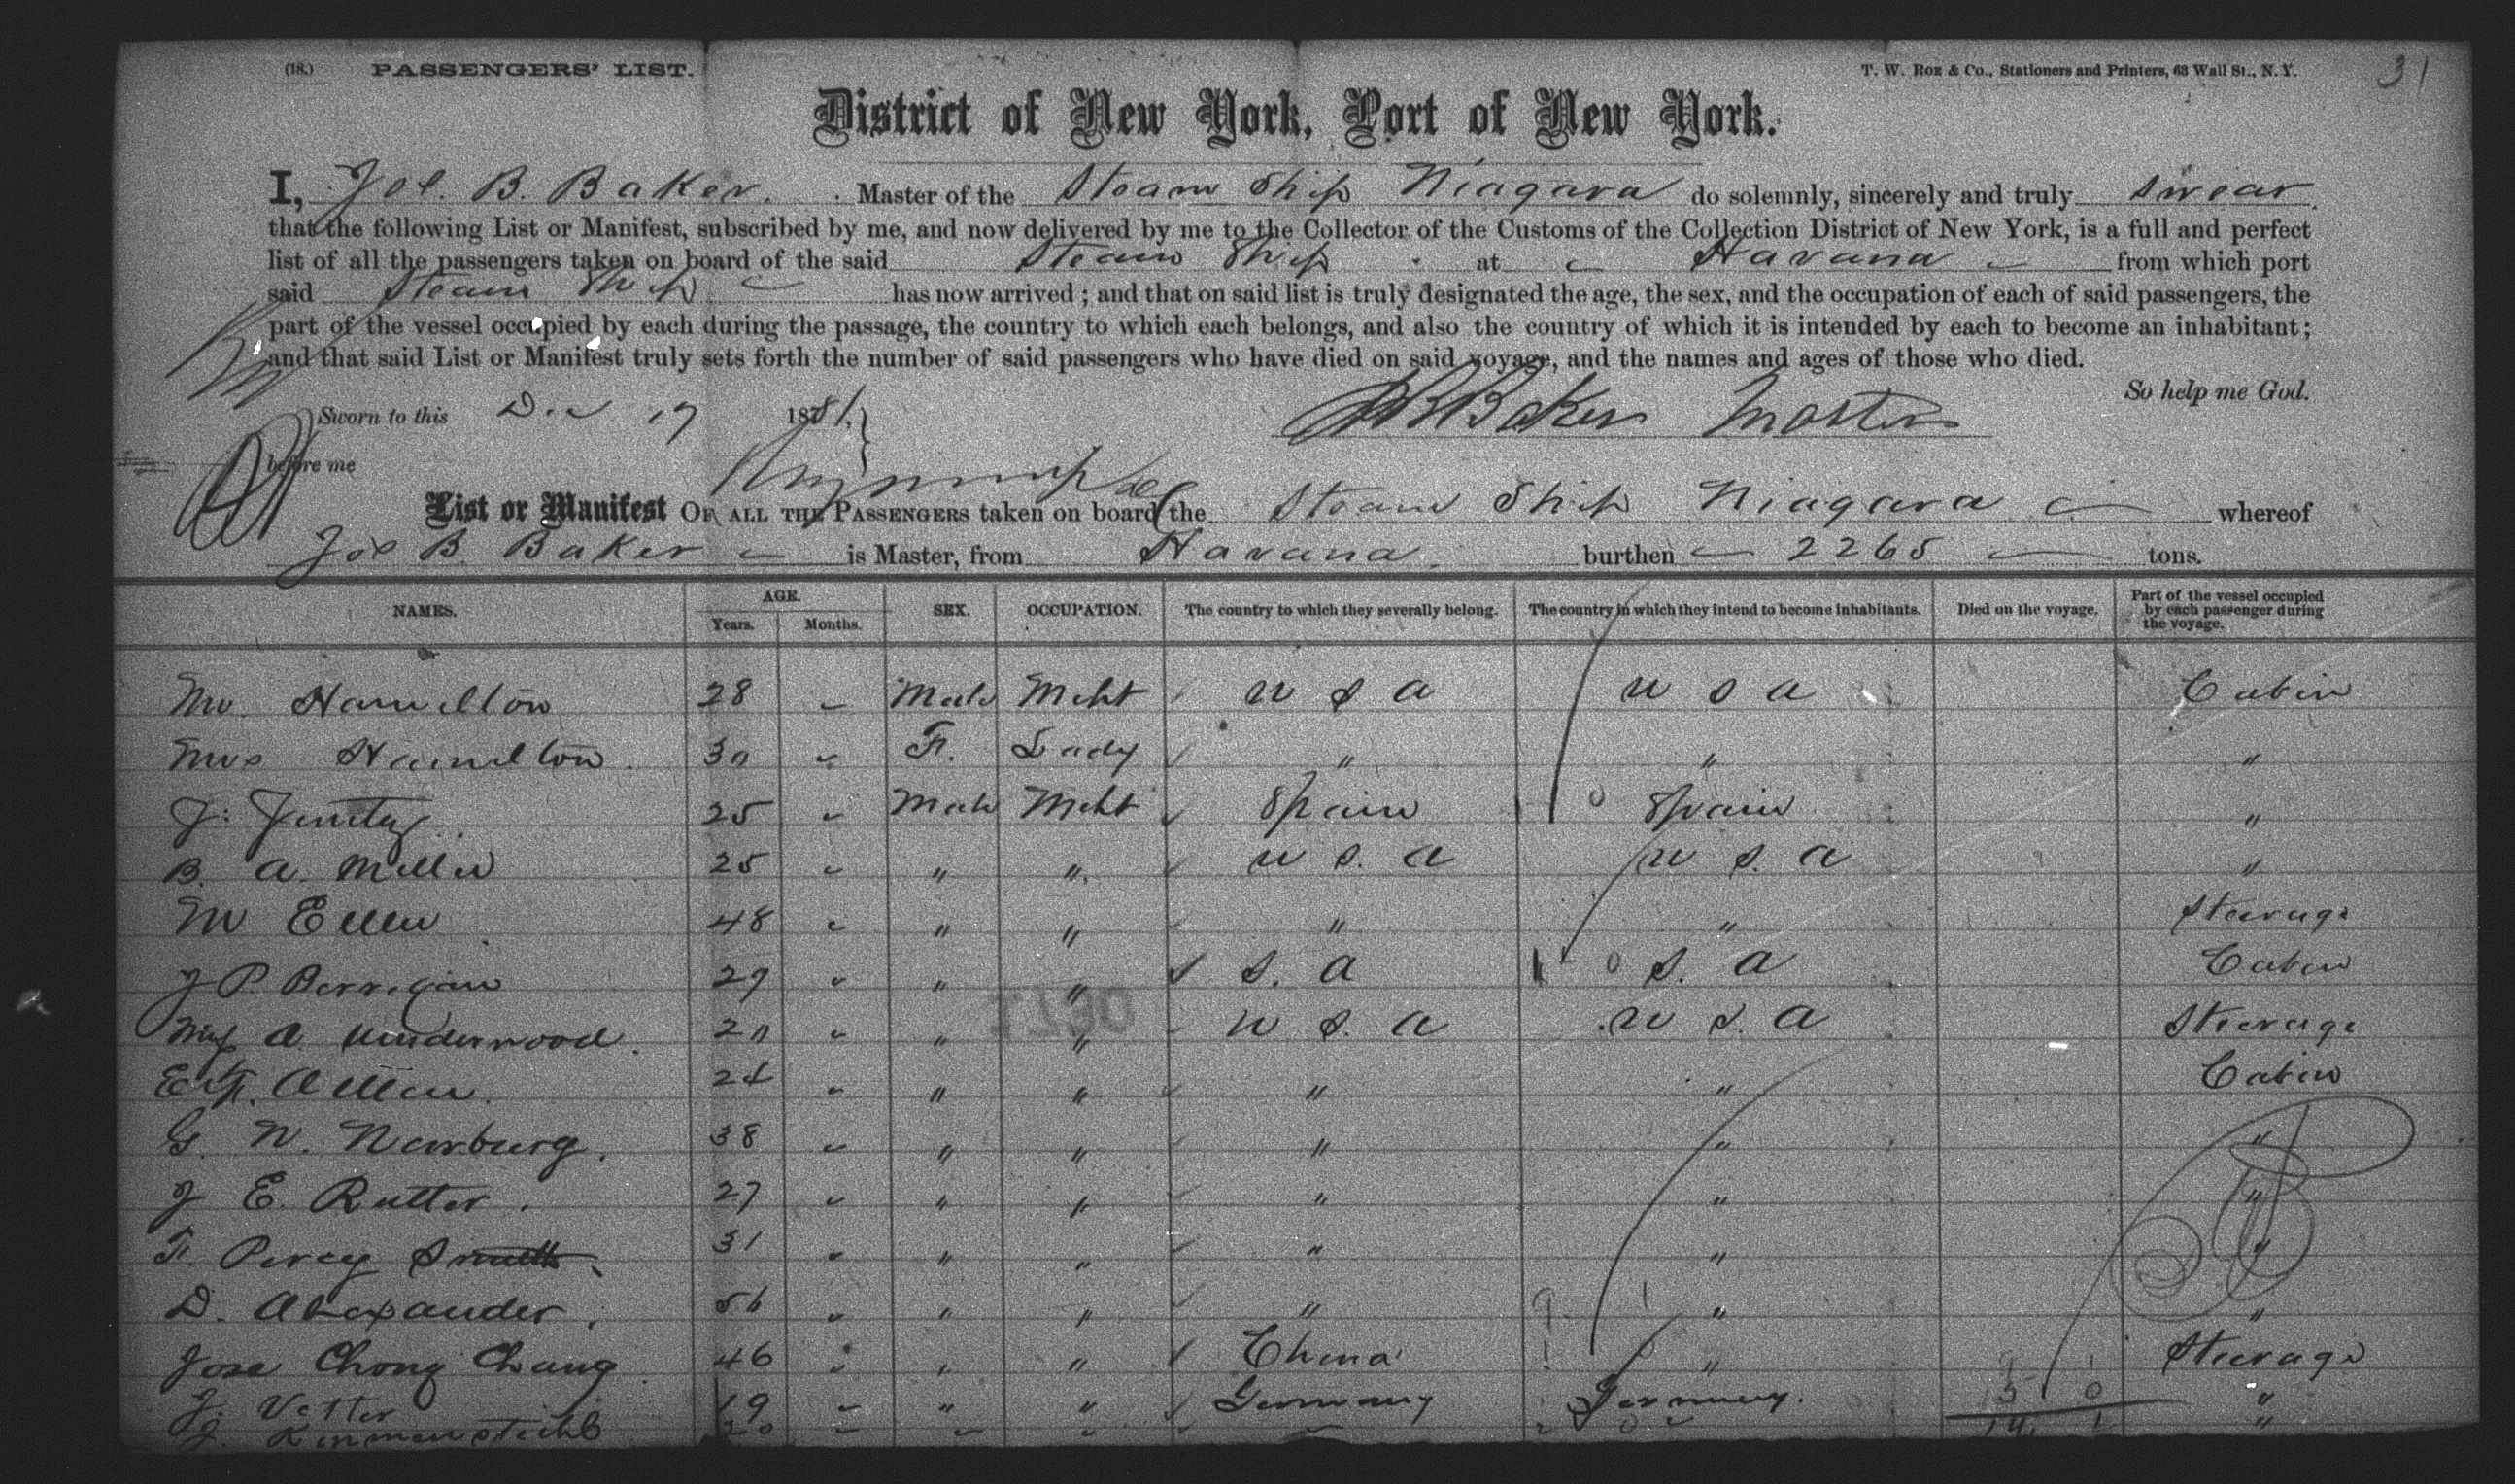 (18.) PASSENGERS' LIST. T. W. Roe & Co., Stationers and Printers, 63 Wall St., N. Y. 31
District of New York, Port of New York.
I, Jos. B. Baker. Master of the Steam Ship Niagara do solemnly, sincerely and truly swear
that the following List or Manifest, subscribed by me, and now delivered by me to the Collector of the Customs of the Collection District of New York, is a full and perfect
list of all the passengers taken on board of the said Steam Ship at Havana from which port
said Steam Ship has now arrived; and that on said list is truly designated the age, the sex, and the occupation of each of said passengers, the
part of the vessel occupied by each during the passage, the country to which each belongs, and also the country of which it is intended by each to become an inhabitant;
and that said List or Manifest truly sets forth the number of said passengers who have died on said voyage, and the names and ages of those who died.
So help me God.
Sworn to this Dec 17 1881, Baker Master
before me
List or Manifest OF ALL THE PASSENGERS taken on board the Steam Ship Niagara whereof
Jos B. Baker is Master, from Havana. burthen 2265 tons.
NAMES. AGE. Years. Months. SEX. OCCUPATION. The country to which they severally belong. The country in which they intend to become inhabitants. Died on the voyage. Part of the vessel occupied by each passenger during the voyage.
Mr. Hamilton 28 Male Mcht U S A U S A Cabin
Mrs Hamilton 30 F. Lady " " "
J. 25 Male Mcht Spain 0 Spain "
B. A. Miller 25 " " U S. A U S. A "
M Ellen 48 " " " " Steerage
J P. Berrigan 29 " " S. A 0 S. A Cabin
A. Underwood. 20 " " U S. A U S. A Steerage
E. F. Allen. 24 " " " " Cabin
S. N. Newburg. 38 " " " " "
J E. Rutter. 27 " " " " "
F. Percy Smith 31 " " " " "
D. Alexander. 56 " " " " "
Jose Chong Chang 46 " " China " Steerage
J. Vetter 19 " " Germany Germany. 5 0 "
J. 20 14 1 "